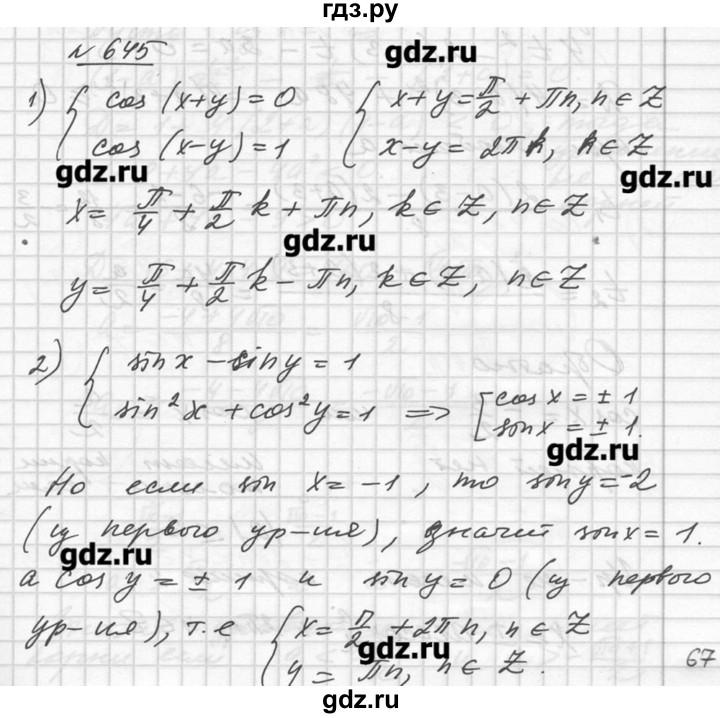 гдз.ру
№ 645
gdz.ru
1) { cos (x+y) = 0    { x+y = π/2 + πn, n ∈ Z
cos (x-y) = 1    x-y = 2πk, k ∈ Z
gdz.ru gdz.ru
x = π/4 + π/2 k + πn, k ∈ Z, n ∈ Z
gdz.ru
y = π/4 + π/2 k - πn, k ∈ Z, n ∈ Z
2) { sin x - sin y = 1
sin²x + cos²y = 1 => [ cos x = ± 1
sin x = ± 1.
gdz.ru
Но если sin x = -1, то sin y = -2
(из первого ур-ия), значит sin x = 1.
gdz.ru
а cos y = ± 1 и sin y = 0 (из первого
ур-ия), т.е { x = π/2 + 2πn, n ∈ Z
gdz.ru
y = πn, n ∈ Z.
67
gdz.ru